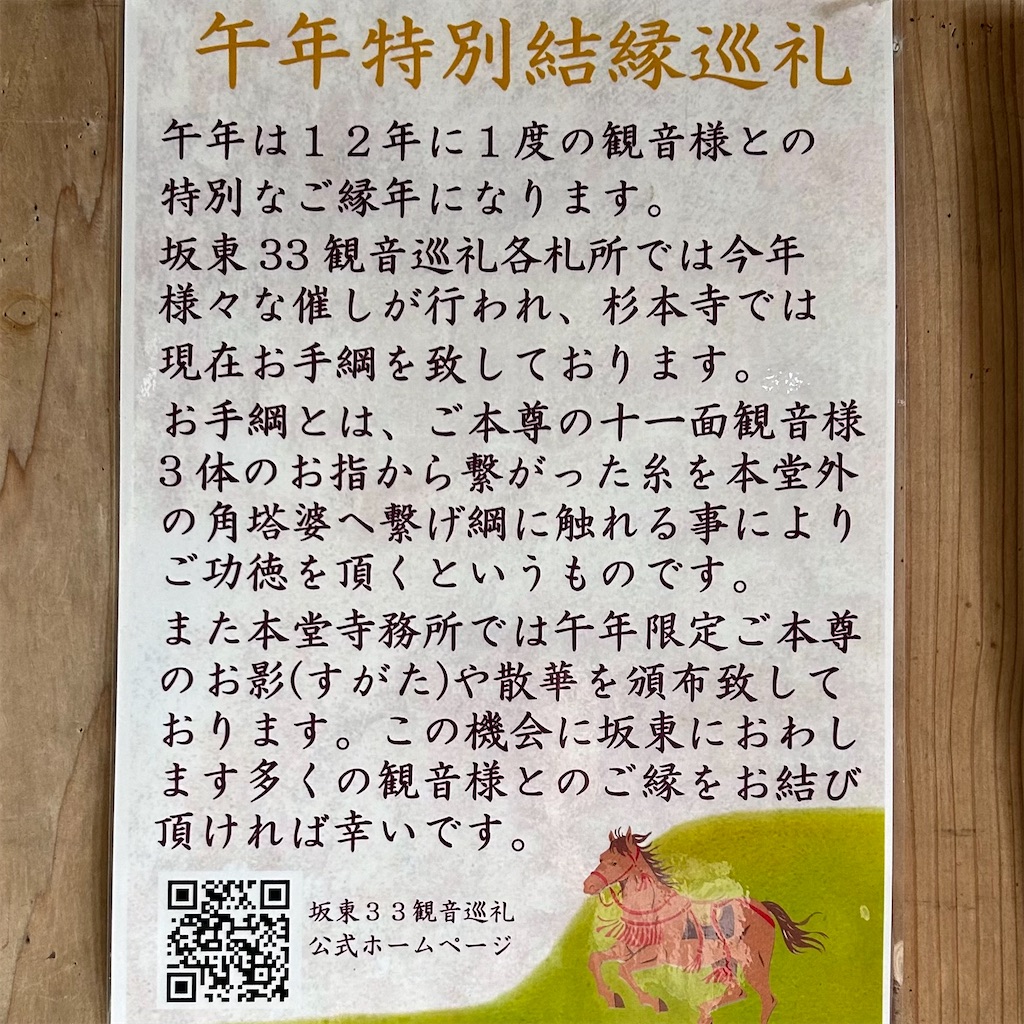 午年特別結縁巡礼
午年は１２年に１度の観音様との
特別なご縁年になります。
坂東33観音巡礼各札所では今年
様々な催しが行われ、杉本寺では
現在お手綱を致しております。
お手綱とは、ご本尊の十一面観音様
３体のお指から繋がった糸を本堂外
の角塔婆へ繋げ綱に触れる事により
ご功徳を頂くというものです。
また本堂寺務所では午年限定ご本尊
のお影(すがた)や散華を頒布致して
おります。この機会に坂東におわし
ます多くの観音様とのご縁をお結び
頂ければ幸いです。
坂東３３観音巡礼
公式ホームページ